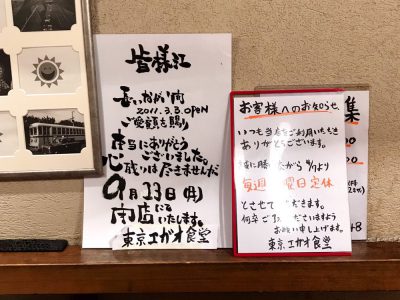 皆様江
長いあいだ
2011.3.3.OPEN
ご愛顧を賜り
本当にありがとう
ございました。
心残りは尽きませんが
9月23日(月)
閉店に
いたします。
東京エガオ食堂
お客様へのお知らせ
いつも当店をご利用いただき
ありがとうございます。
ながら 9/7より
毎週 曜日定休
とさせて だきます。
何卒ご ますよう
お願い申し上げます。
東京エガオ食堂
集